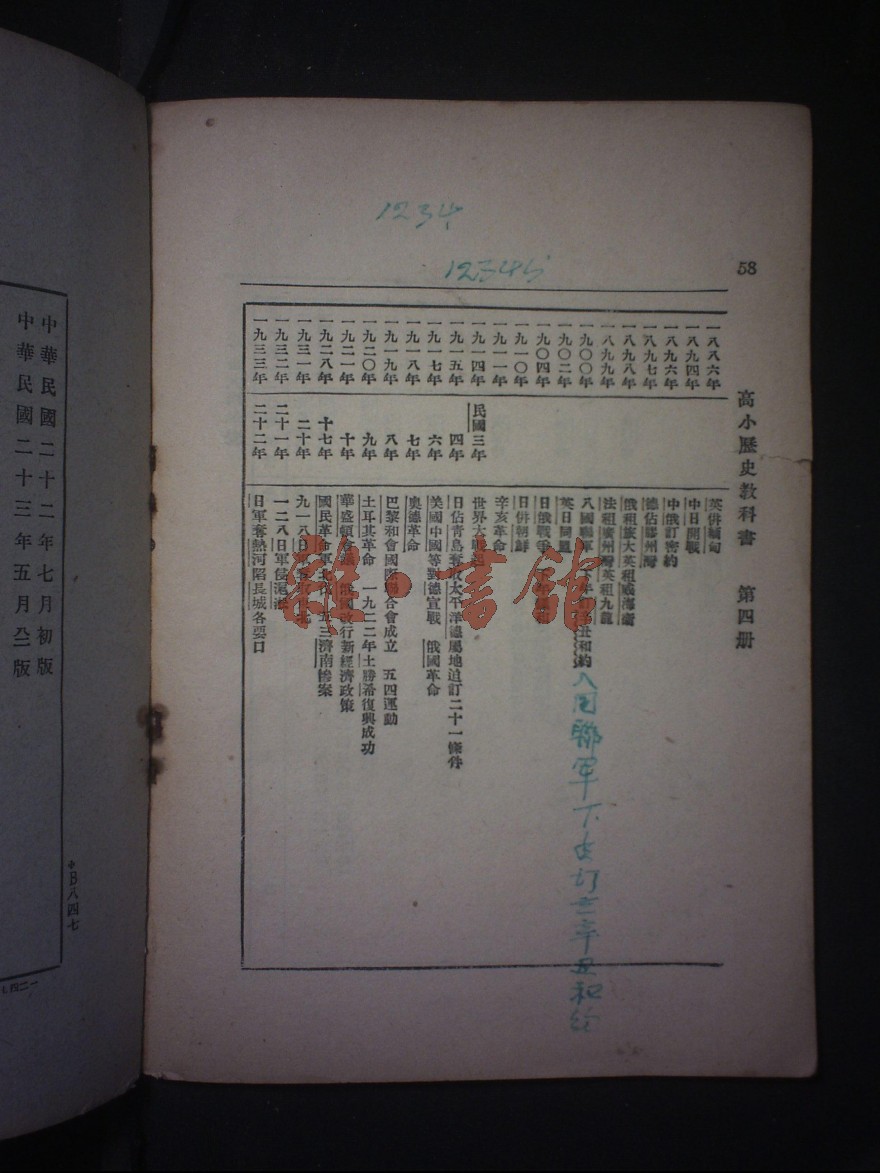 1234
12345
58
高小歷史教科書 第四册
一八八六年 英併緬甸
一八九四年 中日開戰
一八九六年 中俄訂密約
一八九七年 德佔膠州灣
一八九八年 俄租旅大英租威海衞
一八九九年 法租廣州灣英租九龍
一九〇〇年 八國聯軍 年訂辛丑和約
八国聯軍下 訂 辛丑和
一九〇二年 英日同盟
一九〇四年 日俄戰爭
一九一〇年 日併朝鮮
一九一一年 辛亥革命
一九一四年 民國三年 世界大戰起
一九一五年 四年 日佔青島奪取太平洋德屬地迫訂二十一條件
一九一七年 六年 美國中國等對德宣戰 俄國革命
一九一八年 七年 奧德革命
一九一九年 八年 巴黎和會國際聯合會成立 五四運動
一九二〇年 九年 土耳其革命 一九二二年土勝希復興成功
一九二一年 十年 華盛頓會議 俄國改行新經濟政策
一九二八年 十七年 國民革命軍北伐 五三濟南慘案
一九三一年 二十年 九一八日軍
一九三二年 二十一年 一二八日軍侵滬
一九三三年 二十二年 日軍奪熱河陷長城各要口
雜·書館
中華民國二十二年七月初版
中華民國二十三年五月 版
B八四七